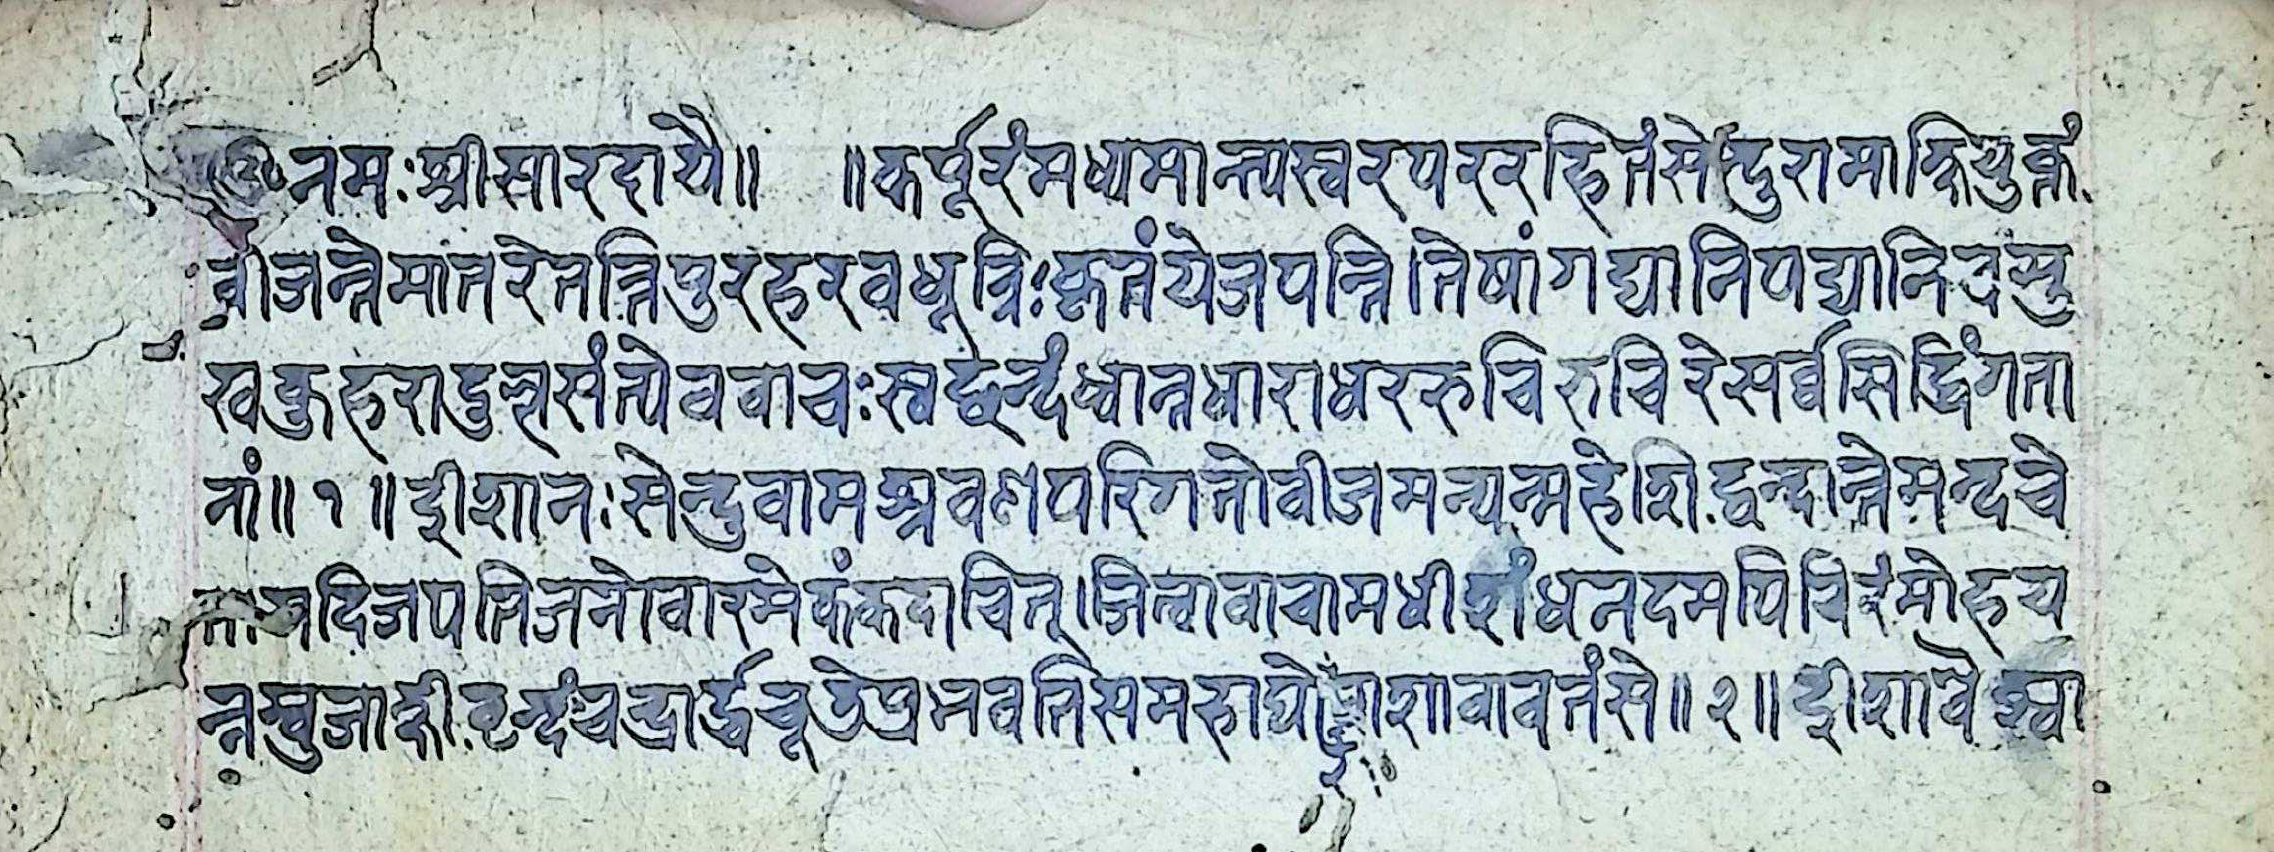 ॐ नमः श्रीसारदायै॥ ॥कर्पूरंमध्यमान्त्यस्वरपररहितंसेन्दुरामाक्षियुक्तं
वीजन्तेमातरेतत्त्रिपुरहरवधूत्रिःकृतंयेजपन्ति।तेषांगद्यानिपद्यानिचमु
खकुहरादुल्लसंत्येववाचःस्वछन्दंध्वान्तधाराधररुचिरुचिरेसर्वसिद्धिंगता
नां॥१॥ईशानःसेन्दुवामश्रवणपरिगतोवीजमन्यन्महेशिद्वन्दान्तेमन्दचे
तायदिजपतिजनोवारमेकंकदाचित्।जित्वावाचामधीशंधनदमपिचिरंमोहय
न्नम्बुजाक्षीवृन्दंचन्द्रार्द्धचूडेप्रभवतिसमहाघोरशावावतंसे॥२॥ईशोवैश्वा